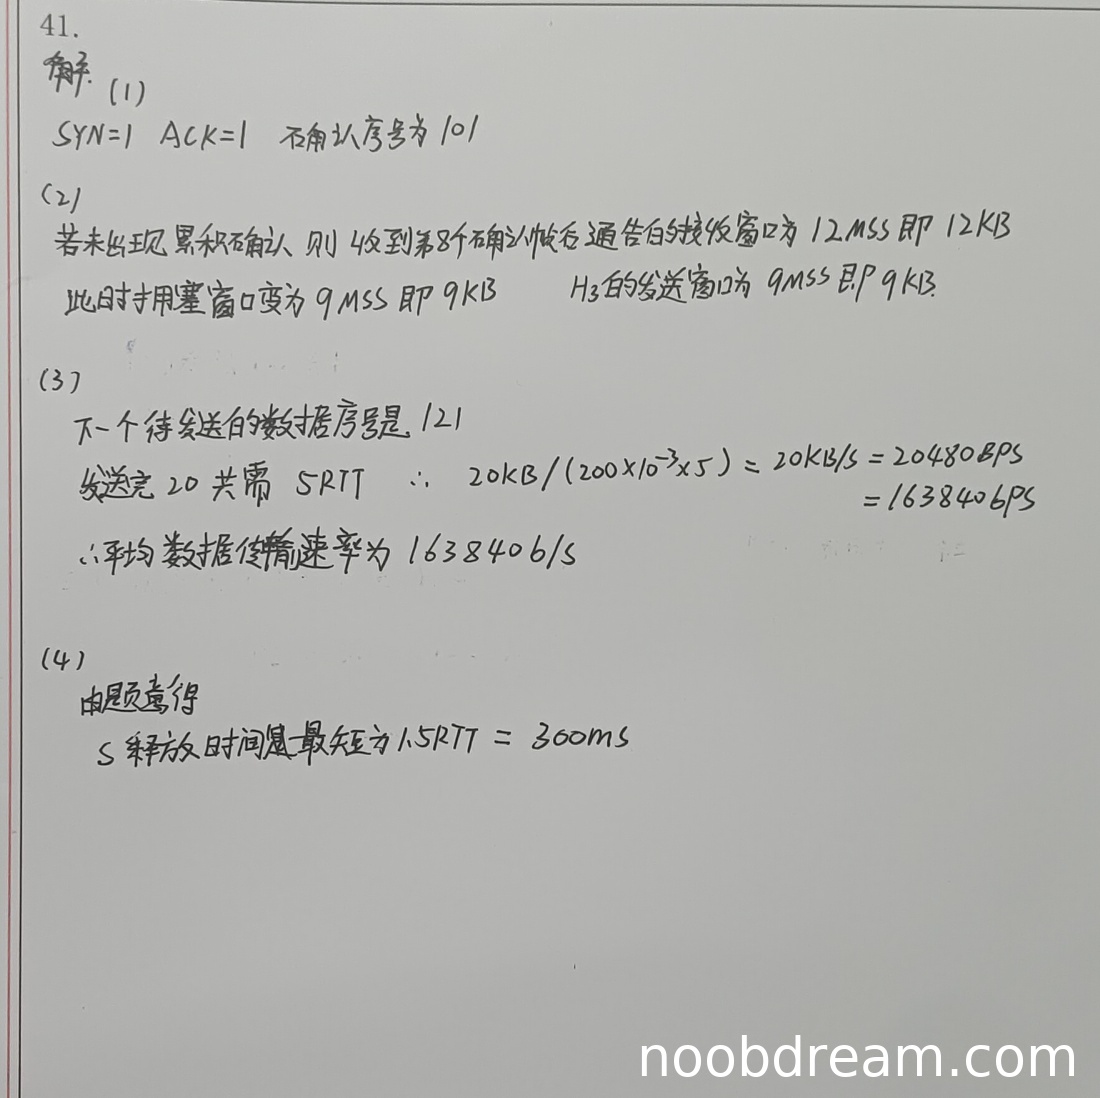 41.
解. (1)
SYN=1 ACK=1 确认序号为101
(2)
若未出现累积确认 则 收到第8个确认帧后通告的接收窗口为 12MSS即 12KB
此时拥塞窗口变为 9MSS 即 9KB H3的发送窗口为 9MSS 即 9KB.
(3)
下一个待发送的数据序号是 121
发送完 20 共需 5RTT ∴ 20KB/(200×10⁻³×5) = 20KB/s = 20480BPS
= 163840bPS
∴平均数据传输速率为 163840b/s
(4)
由题意得
S 释放时间最短为1.5RTT = 300ms
noobdream.com